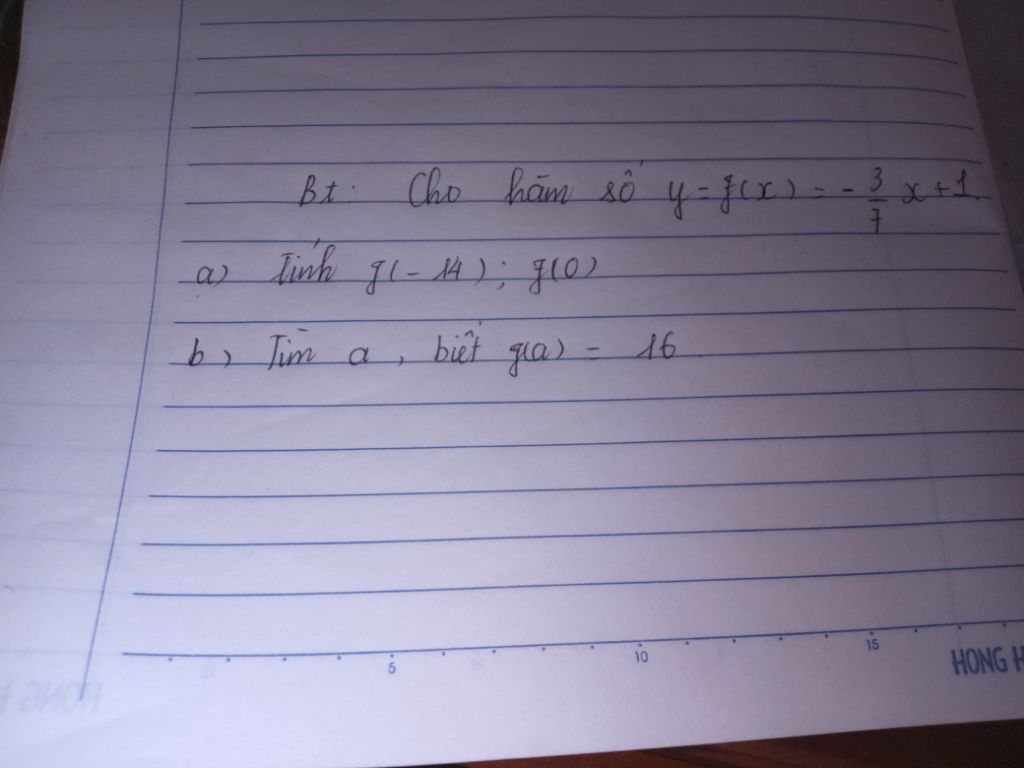 Bt: Cho hàm số y = f(x) = - 3/7 x + 1.
a) Tính f(-14); f(0)
b) Tìm a, biết f(a) = 16
5 10 15
HONG H